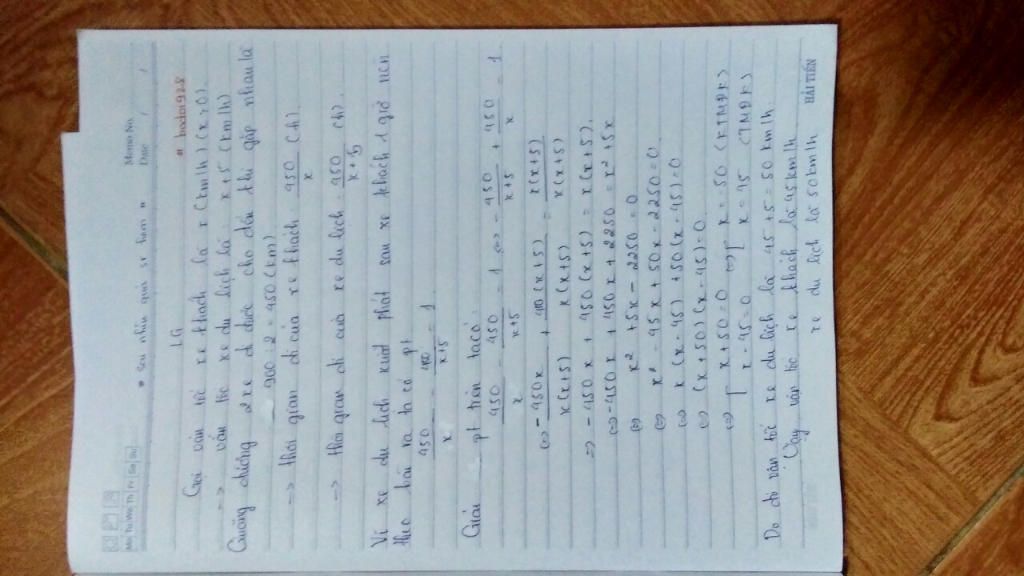 Memo No.
Mo Tu We Th Fr Sa Su
Date / /
" hoctor928
LG
Gọi vận tốc xe khách là x (km/h) (x>0).
-> vận tốc xe du lịch là: x+5 (km/h)
Quãng đường 2 xe đi được cho đến khi gặp nhau là
900 : 2 = 450 (km)
-> thời gian đi của xe khách 450/x (h)
-> thời gian đi của xe du lịch: 450/x+5 (h).
Vì xe du lịch xuất phát sau xe khách 1 giờ nên
theo bài ra ta có pt
450/x - 450/x+5 = 1
Giải pt trên ta có:
450/x - 450/x+5 = 1 <=> - 450/x+5 + 450/x = 1
<=> - 450x/x(x+5) + 450(x+5)/x(x+5) = x(x+5)/x(x+5)
=> - 450x + 450(x+5) = x(x+5).
<=> - 450x + 450x + 2250 = x² + 5x
<=> x² + 5x - 2250 = 0
<=> x² - 45x + 50x - 2250 = 0
<=> x(x-45) + 50(x-45) = 0
<=> (x+50)(x-45) = 0
<=> [ x+50 = 0 <=> [ x = -50 (KTMĐK)
x-45 = 0 x = 45 (TMĐK)
Do đó vận tốc xe du lịch là 45 + 5 = 50 km/h
Vậy vận tốc xe khách là 45 km/h
xe du lịch là 50 km/h
HẢI TIẾN